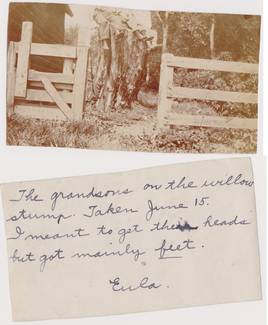 The grandsons on the willow
stump. Taken June 15.
I meant to get their heads
but got mainly feet.
Eula.